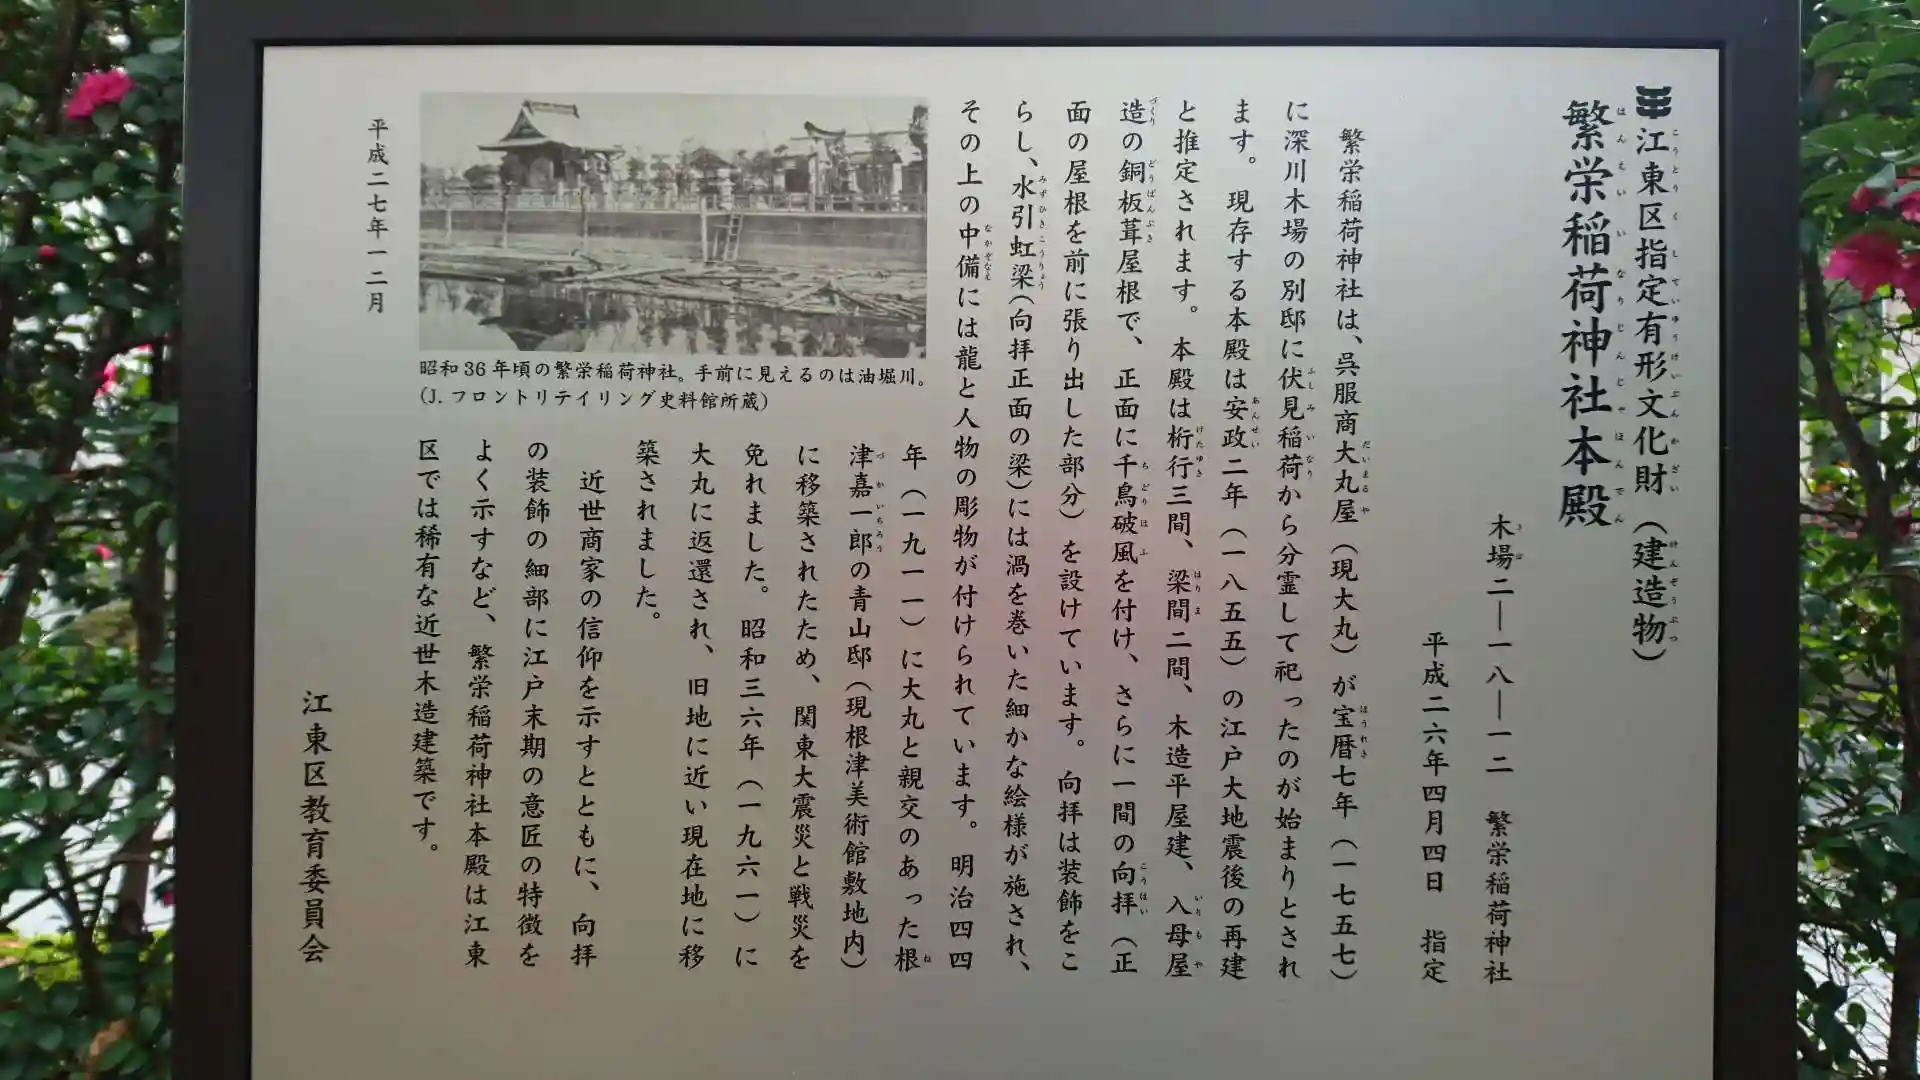 江東区指定有形文化財（建造物）
繁栄稲荷神社本殿
木場二―一八―一二　繁栄稲荷神社
平成二六年四月四日　指定
繁栄稲荷神社は、呉服商大丸屋（現大丸）が宝暦七年（一七五七）
に深川木場の別邸に伏見稲荷から分霊して祀ったのが始まりとされ
ます。現存する本殿は安政二年（一八五五）の江戸大地震後の再建
と推定されます。本殿は桁行三間、梁間二間、木造平屋建、入母屋
造の銅板葺屋根で、正面に千鳥破風を付け、さらに一間の向拝（正
面の屋根を前に張り出した部分）を設けています。向拝は装飾をこ
らし、水引虹梁（向拝正面の梁）には渦を巻いた細かな絵様が施され、
その上の中備には龍と人物の彫物が付けられています。明治四四
年（一九一一）に大丸と親交のあった根
津嘉一郎の青山邸（現根津美術館敷地内）
に移築されたため、関東大震災と戦災を
免れました。昭和三六年（一九六一）に
大丸に返還され、旧地に近い現在地に移
築されました。
近世商家の信仰を示すとともに、向拝
の装飾の細部に江戸末期の意匠の特徴を
よく示すなど、繁栄稲荷神社本殿は江東
区では稀有な近世木造建築です。
昭和36年頃の繁栄稲荷神社。手前に見えるのは油堀川。
（J.フロントリテイリング史料館所蔵）
平成二七年一二月
江東区教育委員会